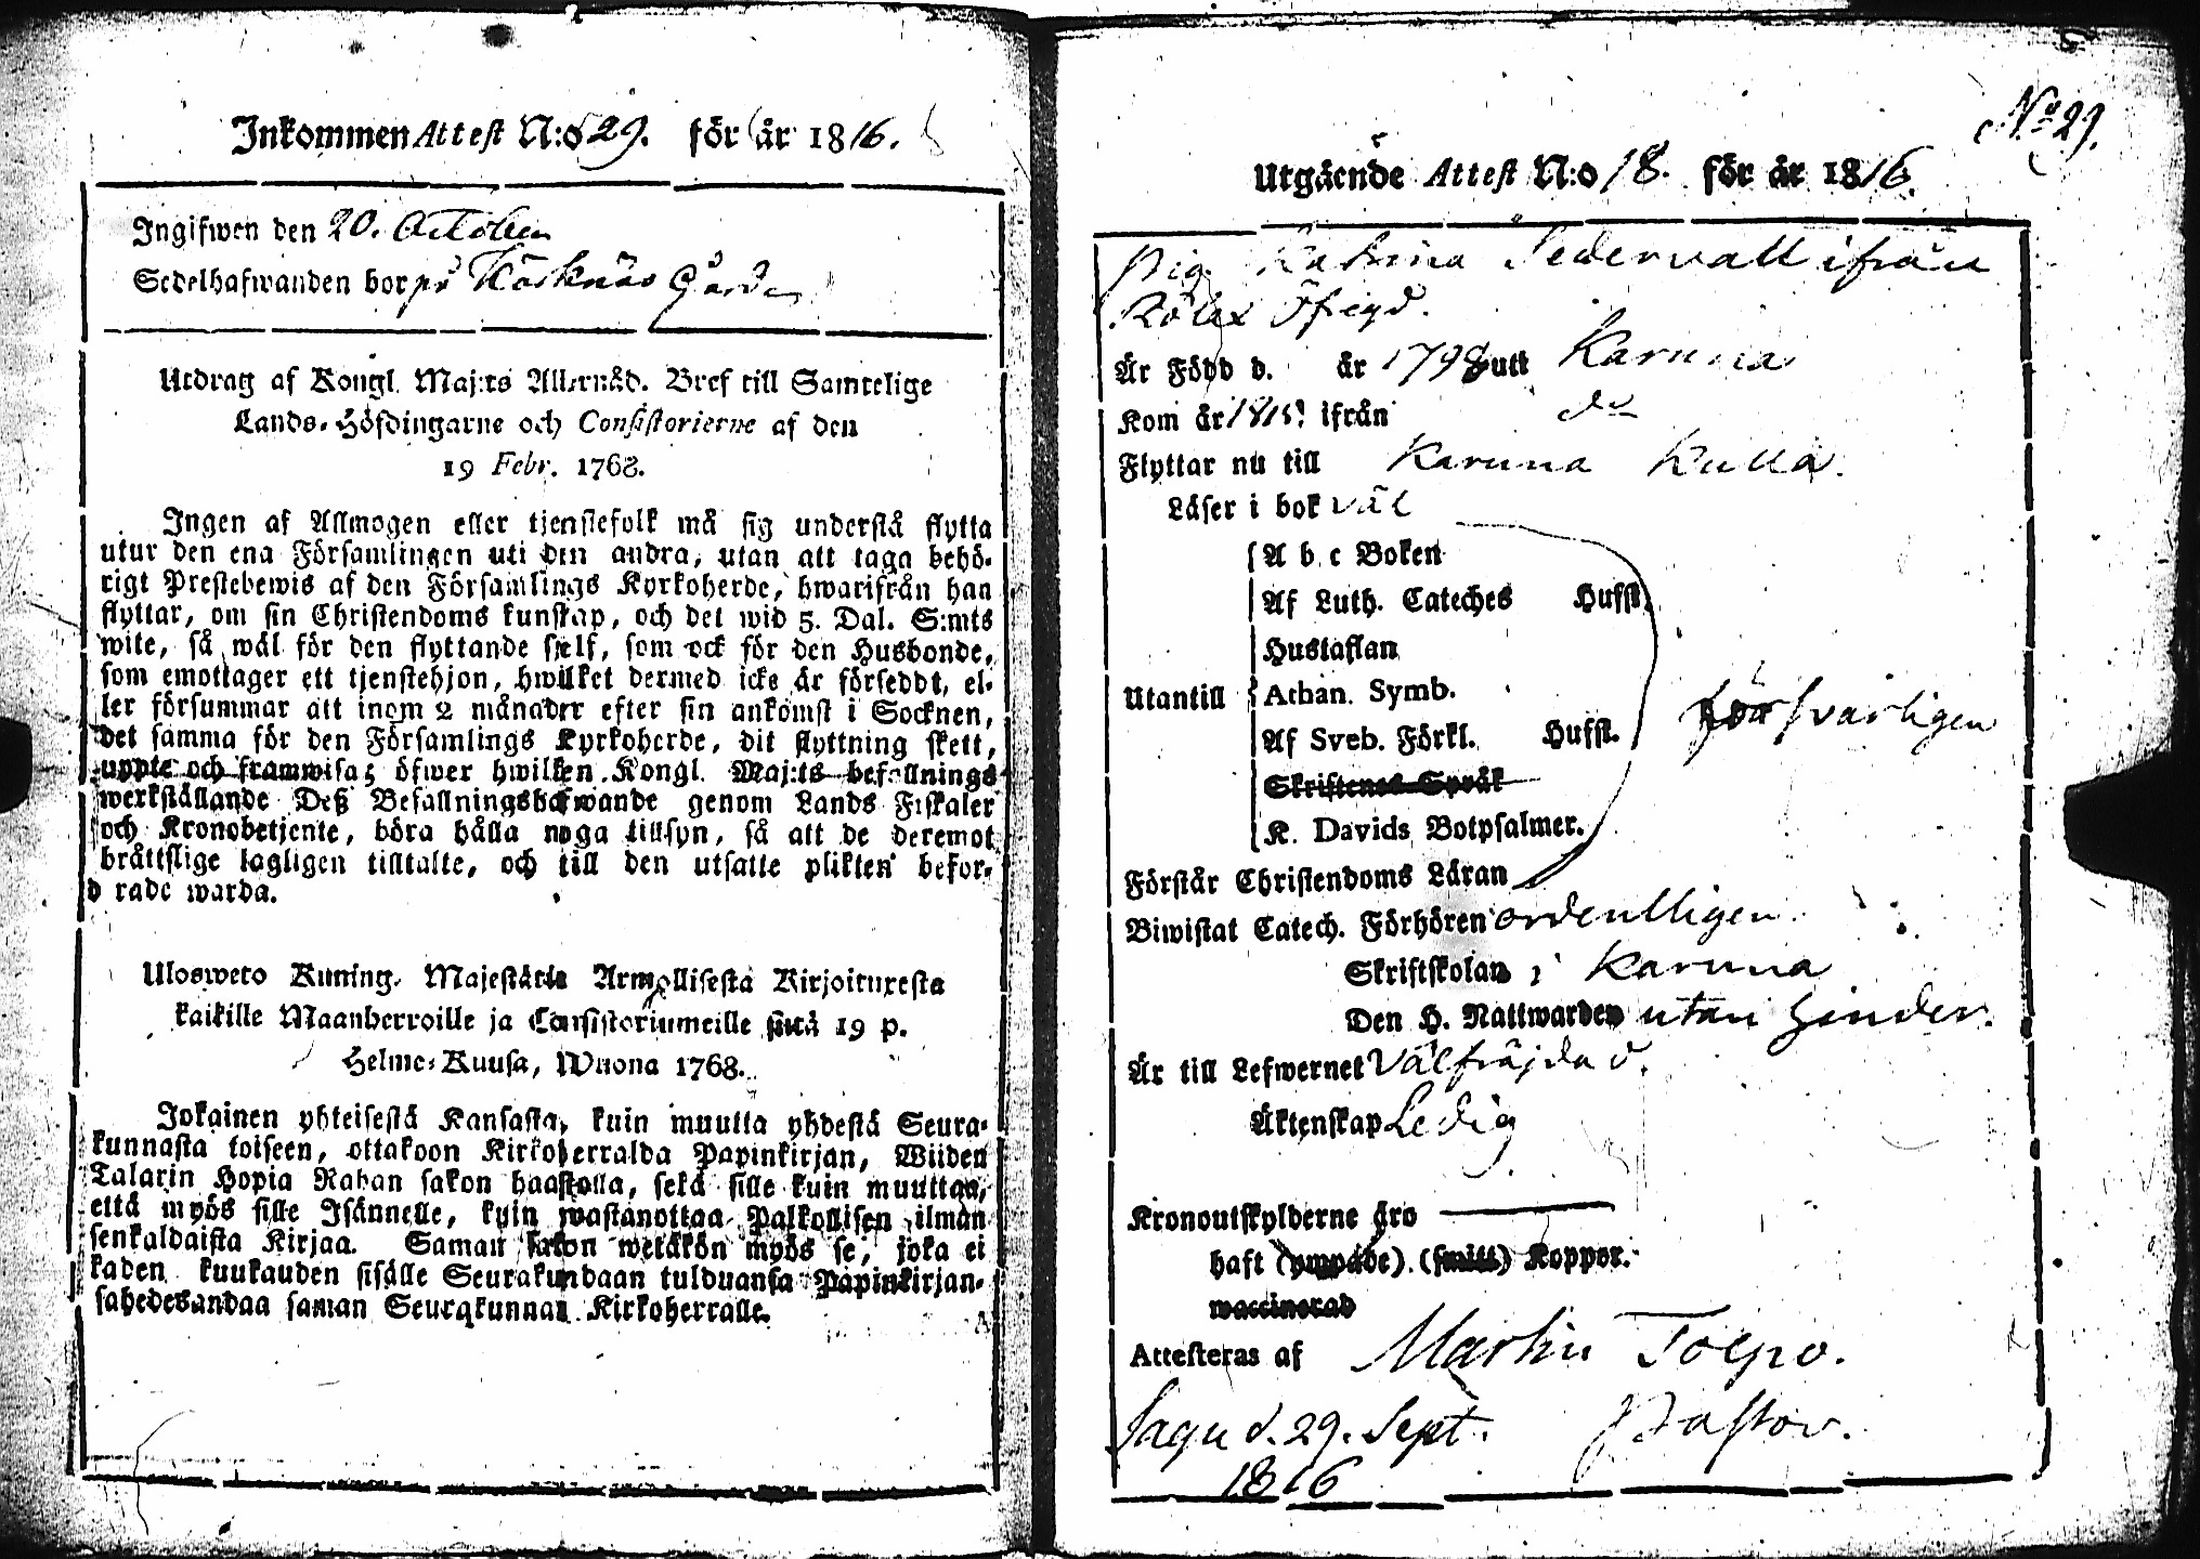 Inkommen Attest N:o 29. för år 1816.
Ingifwen den 20. October
Sedelhafwanden bor på Gård
Utdrag af Kongl. Maj:ts Allernåd. Bref till Samtelige
Lands-Höfdingarne och Consistorierne af den
19 Febr. 1768.
Ingen af Allmogen eller tjenstefolk må sig understå flytta
utur den ena Församlingen uti den andra, utan att taga behö-
rigt Prestebewis af den Församlings Kyrkoherde, hwarifrån han
flyttar, om sin Christendoms kunskap, och det wid 5. Dal. S:mts
wite, så wäl för den flyttande sjelf, som ock för den Husbonde,
som emottager ett tjenstehjon, hwilket dermed icke är försedt, el-
ler försummar att inom 2 månader efter sin ankomst i Socknen,
det samma för den Församlings Kyrkoherde, dit flyttning skett,
uppte och framwisa; öfwer hwilken Kongl. Maj:ts befallnings
werkställande Deß Befallningshafwande genom Lands Fiskaler
och Kronobetjente, böra hålla noga tillsyn, så att de deremot
bråttslige lagligen tilltalte, och till den utsatte plikten befor-
d rade warda.
Ulosweto Kuning. Majestätin Armollisesta Kirjoituxesta
kaikille Maanherroille ja Consistoriumeille siitä 19 p.
Helme-Kuusa, Wuona 1768.
Jokainen yhteisestä Kansasta, kuin muutta yhdestä Seura-
kunnasta toiseen, ottakoon Kirkoherralda Papinkirjan, Wiiden
Talarin Hopia Rahan sakon haastolla, sekä sille kuin muuttaa,
että myös sille Isännelle, kuin wastanottaa Palkollisen ilman
senkaldaista Kirjaa. Saman sakon wetäkön myös se, joka ei
kaden kuukauden sisälle Seurakundaan tulduansa Papinkirjan-
sahedesandaa saman Seurakunnan Kirkoherralle.
No 29.
Utgående Attest N:o 18. för år 1816.
Pig. Katrina Sedervall ifrån
Är Född d. år 1798 uti Karuna
Kom år 1815 ifrån do
Flyttar nu till Karuna Kulla.
Läser i bok väl
A b c Boken
Af Luth. Cateches Hufst.
Hustaflan
Utantill Athan. Symb. försvarligen
Af Sveb. Förkl. Hufst.
Skriftenes Språk
K. Davids Botpsalmer.
Förstår Christendoms Läran
Biwistat Catech. Förhören ordentligen
Skriftskolan i Karuna
Den H. Nattwarden utan hinder.
Är till Lefwernet Välfräjdad.
Äktenskap Ledig
Kronoutskylderne äro
haft (ympade). (smitt) Koppor.
waccinerad
Attesteras af Martin Tolpo.
Sagu d. 29. Sept. Pastor.
1816